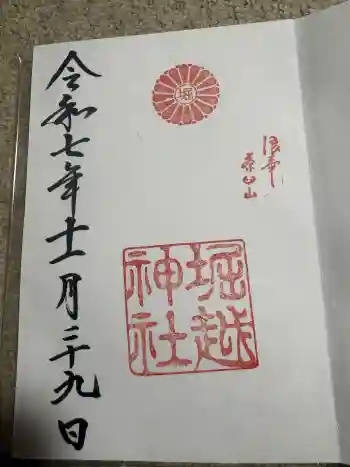 浪華
茶臼山
堀
堀越
神社
令和七年十一月二十九日